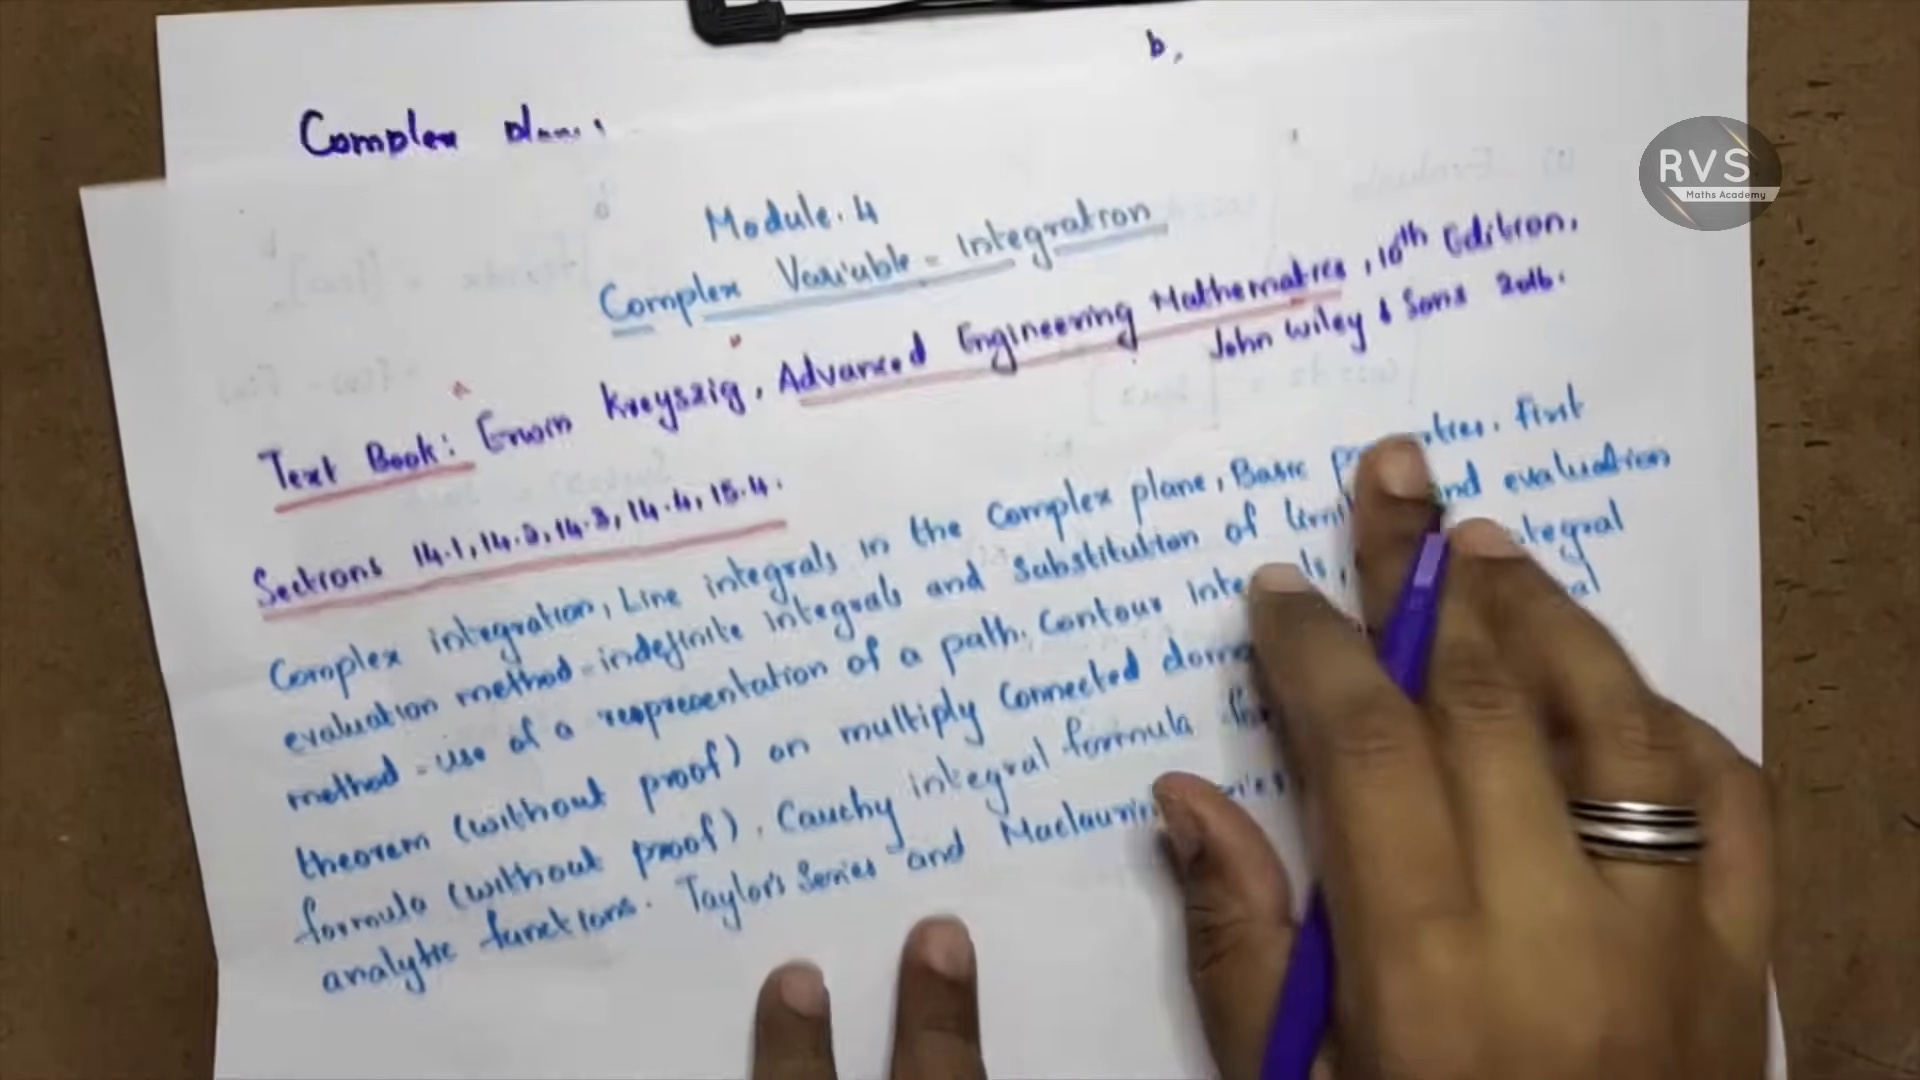 b,
Complex
RVS
Maths Academy
Module. 4
Complex Variable - Integration
Text Book: Erwin Kreyszig, Advanced Engineering Mathematics, 10th Edition,
John Wiley & Sons 2016.
Sections 14.1, 14.2, 14.3, 14.4, 15.4.
Complex integration, Line integrals in the Complex plane, Basic First
evaluation method - indefinite integrals and substitution of and evaluation
method - use of a respresentation of a path. Contour
theorem (without proof) on multiply Connected
formula (without proof). Cauchy integral formula
analytic functions. Taylor's Series and Maclaurin